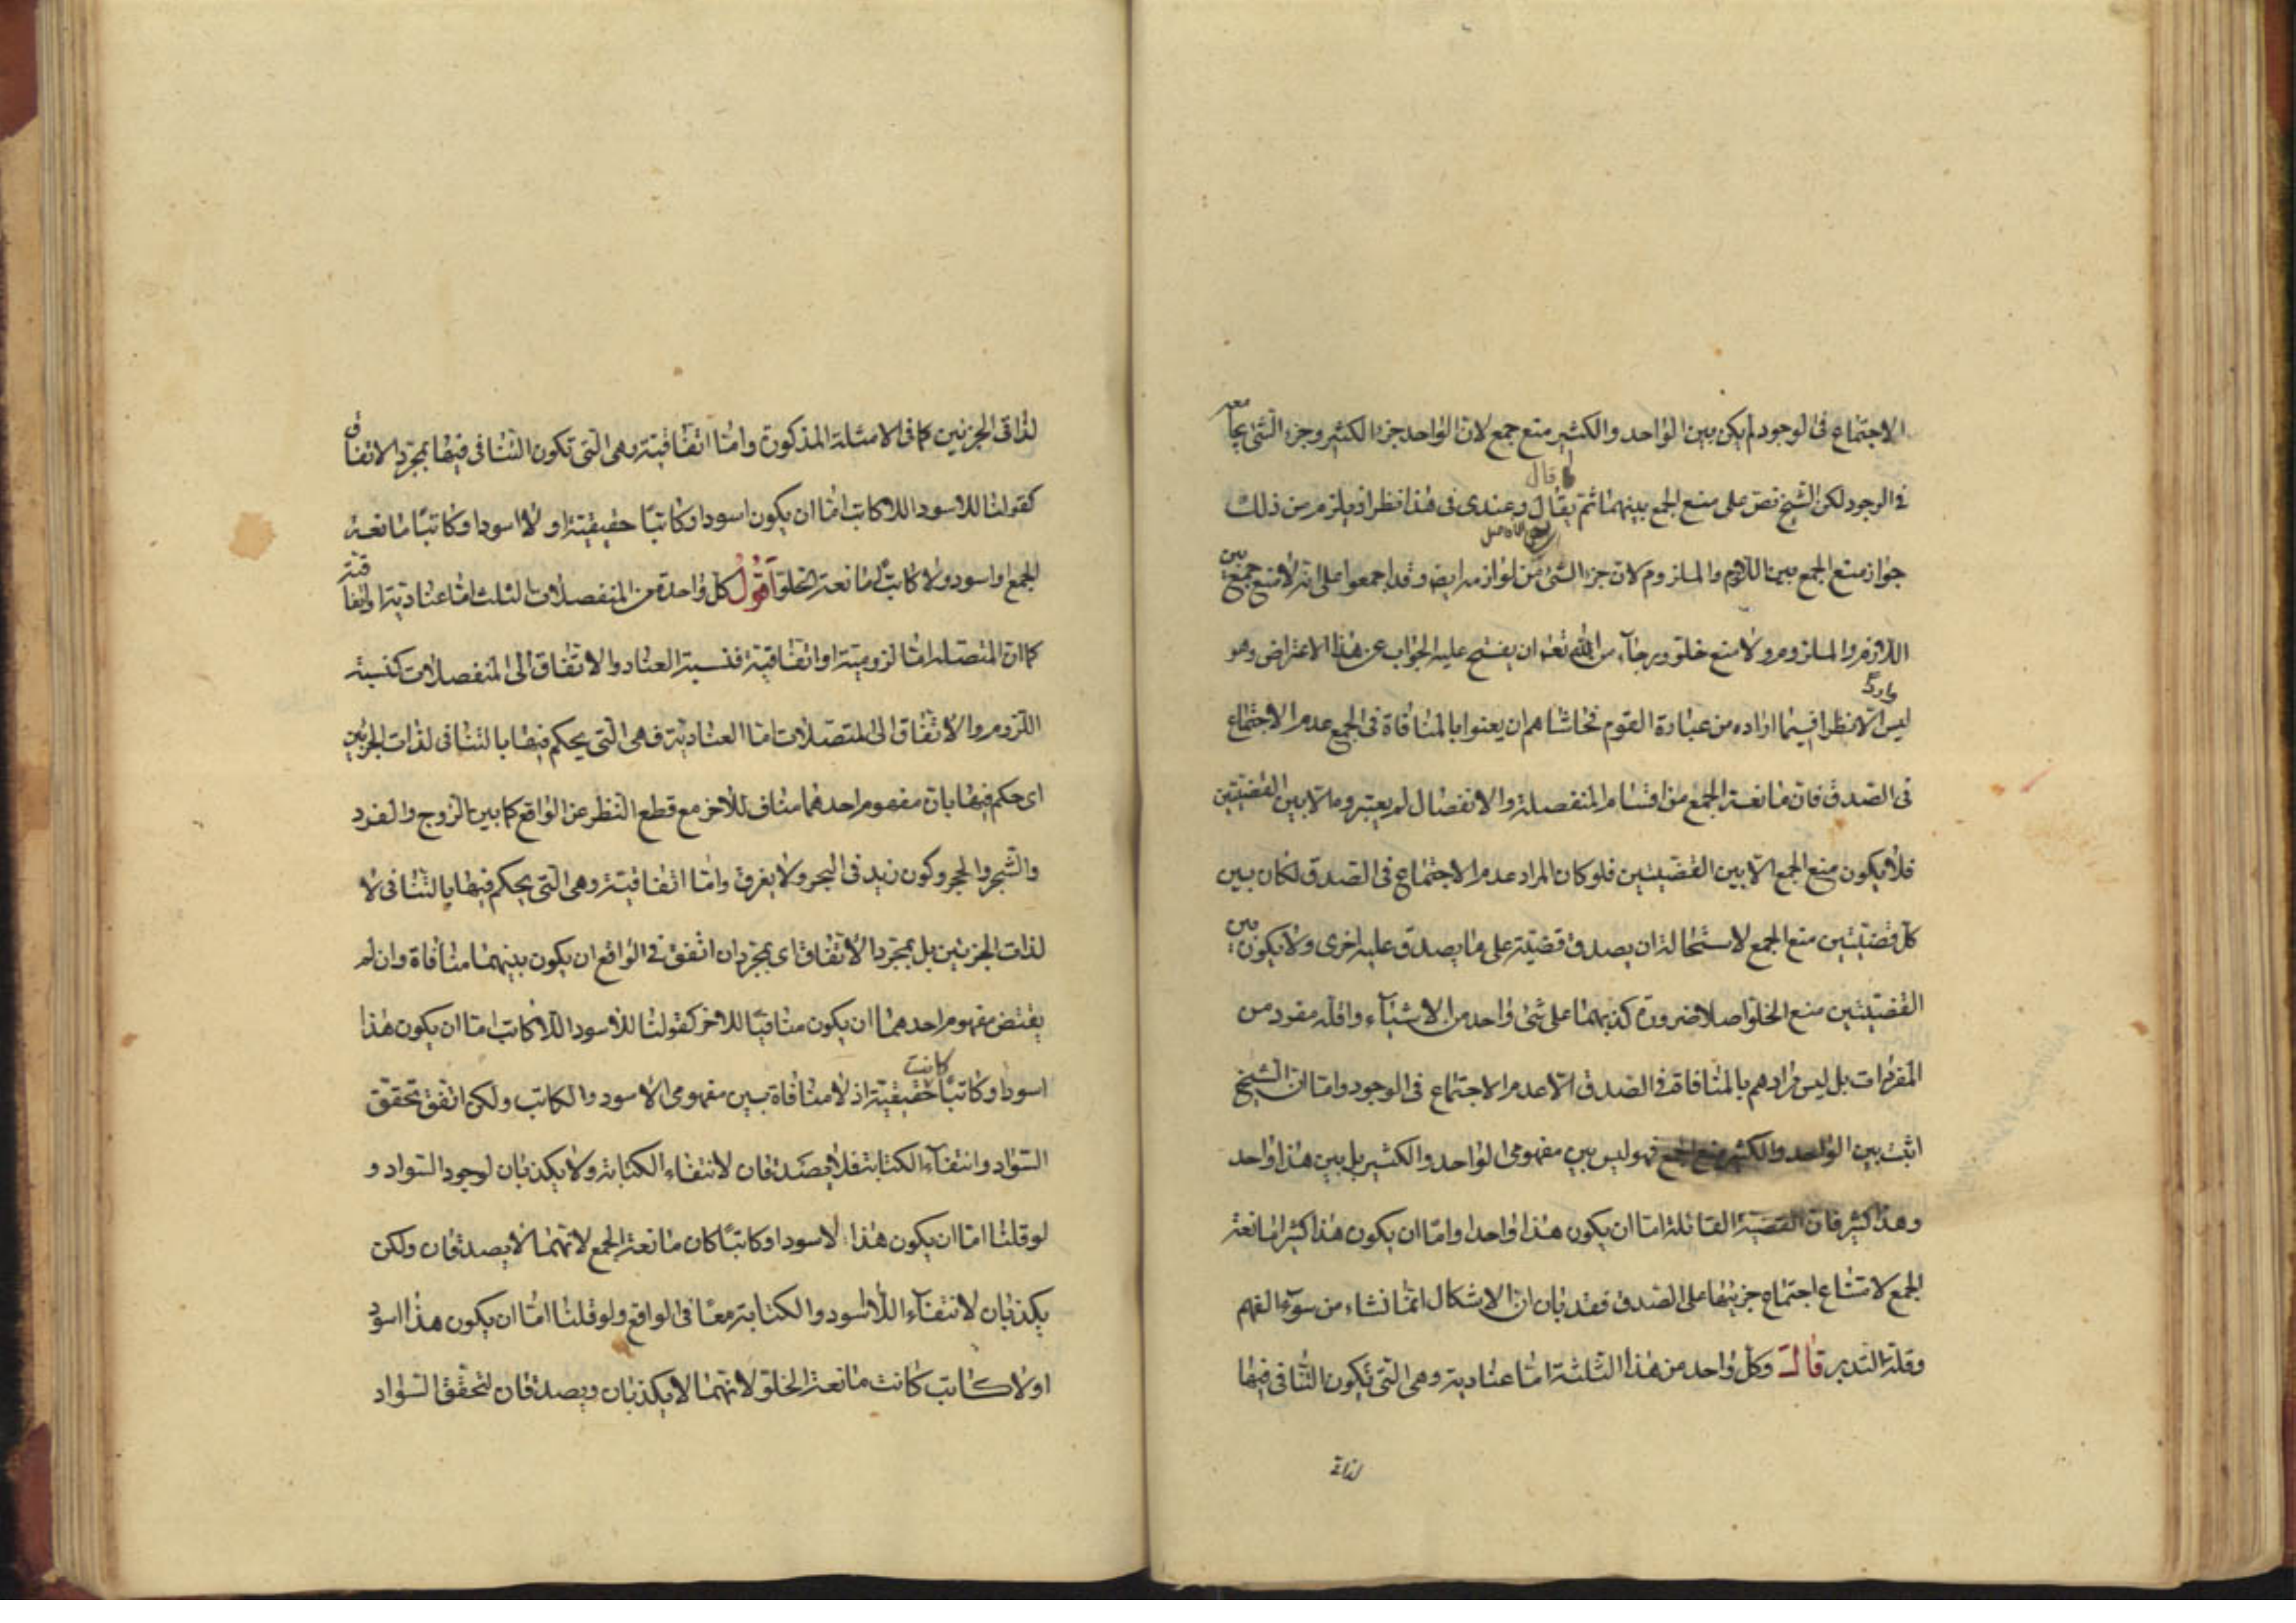 الاجتماع فى الوجود لم يكن بين الواحد والكثير منع جمع لان الواحد جزء الكثير وجزء الشئ يجامعه
فى الوجود لكن الشيخ نص على منع الجمع بينهما ثم قال وعندى فى هذا نظر اذ يلزم من ذلك
جواز منع الجمع بين اللازم والملزوم لان جزء الشئ من لوازمه ايضا وقد اجمعوا على انه لا منع جمع بين
اللازم والملزوم ولا منع خلو ورجاء من الله تعه ان يفتح عليه الجواب عن هذا الاعتراض وهو
ليس الا نظرا فيما اراده من عبارة القوم فحاشاهم ان يعنوا بالمنافاة فى الجمع عدم الاجتماع
فى الصدق فان مانعة الجمع من اقسام المنفصلة والانفصال لم يعتبروه الا بين القضيتين
فلا يكون منع الجمع الا بين القضيتين فلو كان المراد عدم الاجتماع فى الصدق لكان بين
كل قضيتين منع الجمع لاستحالة ان يصدق قضية على ما يصدق عليه اخرى ولا يكون بين
القضيتين منع الخلو اصلا ضرورة كذبهما على شئ واحد من الاشياء واقله مفرد من
المفردات بل ليس مرادهم بالمنافاة فى الصدق الا عدم الاجتماع فى الوجود واما ان الشيخ
اثبت بين الواحد والكثير منع الجمع فهو ليس بين مفهومى الواحد والكثير بل بين هذا واحد
وهذا كثير فان القضية القائلة اما ان يكون هذا واحدا واما ان يكون هذا كثيرا مانعة
الجمع لامتناع اجتماع جزئيها على الصدق فقد بان ان الاشكال انما نشاء من سوء الفهم
وقلة التدبر قال وكل واحد من هذا الثلثة اما عنادية وهى التى يكون التنافى فيها
لذاتى
لذاتى الجزئين كما فى الامثلة المذكورة واما اتفاقية وهى التى تكون التنافى فيها بمجرد الاتفاق
كقولنا للاسود اللاكاتب اما ان يكون اسود او كاتبا حقيقية او لا اسود او كاتبا مانعة
الجمع او اسود ولا كاتبا مانعة الخلو اقول كل واحدة من المنفصلات الثلث اما عنادية او اتفاقية
كما ان المتصلة اما لزومية او اتفاقية فنسبة العناد والاتفاق الى المنفصلات كنسبة
اللزوم والاتفاق الى المتصلات اما العنادية فهى التى يحكم فيها بالتنافى لذات الجزئين
اى حكم فيها بان مفهوم احدهما مناف للآخر مع قطع النظر عن الواقع كما بين الزوج والفرد
والشجر والحجر وكون زيد فى البحر ولا يغرق واما اتفاقية وهى التى يحكم فيها بالتنافى لا
لذات الجزئين بل بمجرد الاتفاق اى بمجرد ان اتفق فى الواقع ان يكون بينهما منافاة وان لم
يقتض مفهوم احدهما ان يكون منافيا للاخر كقولنا للاسود اللاكاتب اما ان يكون هذا
اسود او كاتبا كانت حقيقية اذ لا منافاة بين مفهومى الاسود والكاتب ولكن اتفق تحقق
السواد وانتفاء الكتابة فلا يصدقان لانتفاء الكتابة ولا يكذبان لوجود السواد و
لو قلنا اما ان يكون هذا لا اسود او كاتبا كان مانعة الجمع لانهما لا يصدقان ولكن
يكذبان لانتفاء اللااسود والكتابة معا فى الواقع ولو قلنا اما ان يكون هذا اسود
او لا كاتب كانت مانعة الخلو لانهما لا يكذبان ويصدقان لتحقق السواد